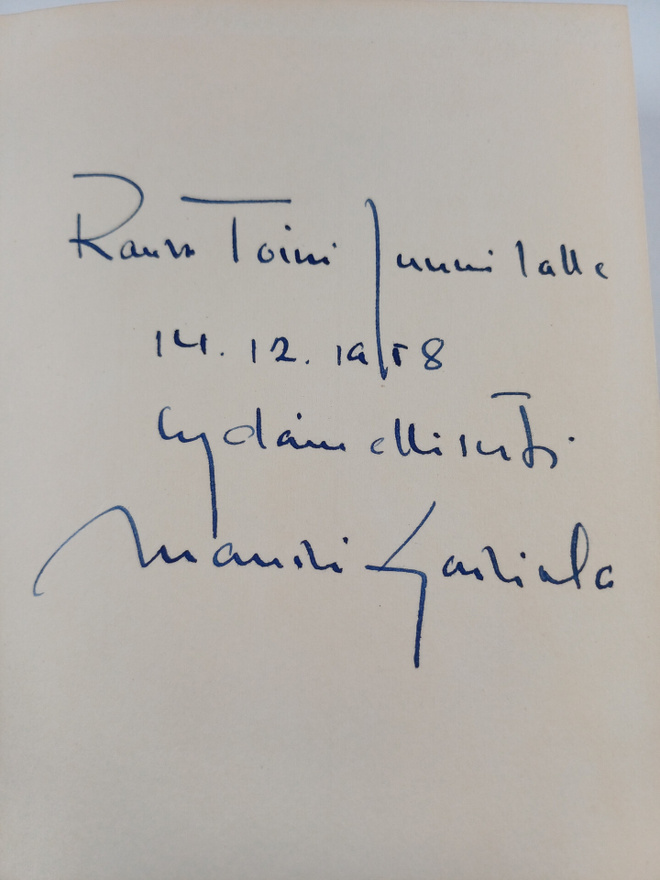 Rouva Toini Junnilalle
14.12.1958
Sydämellisesti
Mauri Sariola